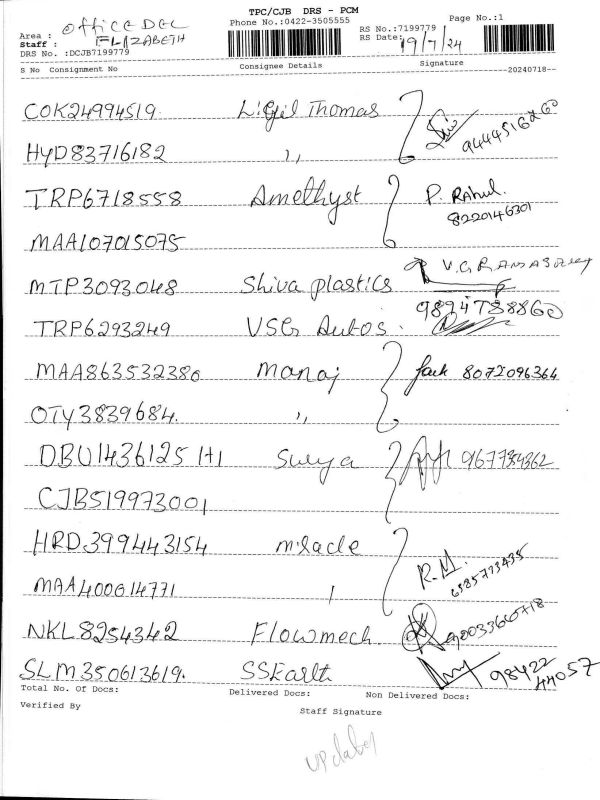 TPC/CJB DRS - PCM
Phone No.:0422-3505555
Page No.:1
Area : Office DEL
Staff : ELIZABETH
DRS No. :DCJB7199779
RS No.:7199779
RS Date: 19/7/24
S No Consignment No Consignee Details Signature
20240718
COK24994519 Thomas 9444516260
HYD83716182 ,,
TRP6718558 Amethyst P. Rahul. 8220146301
MAA107015075
MTP3093048 Shiva plastics
TRP6293249 VSG Autos. 9894788860
MAA863532380 Manoj 8072096364
OTY3839684. ,,
DBU1436125 Surya
CJB519973001
HRD399443154 miracle R.M. 6385773435
MAA400614771
NKL8254342 Flowmech.
SLM350613619. 98422 44057
Total No. Of Docs: Delivered Docs: Non Delivered Docs:
Verified By
Staff Signature